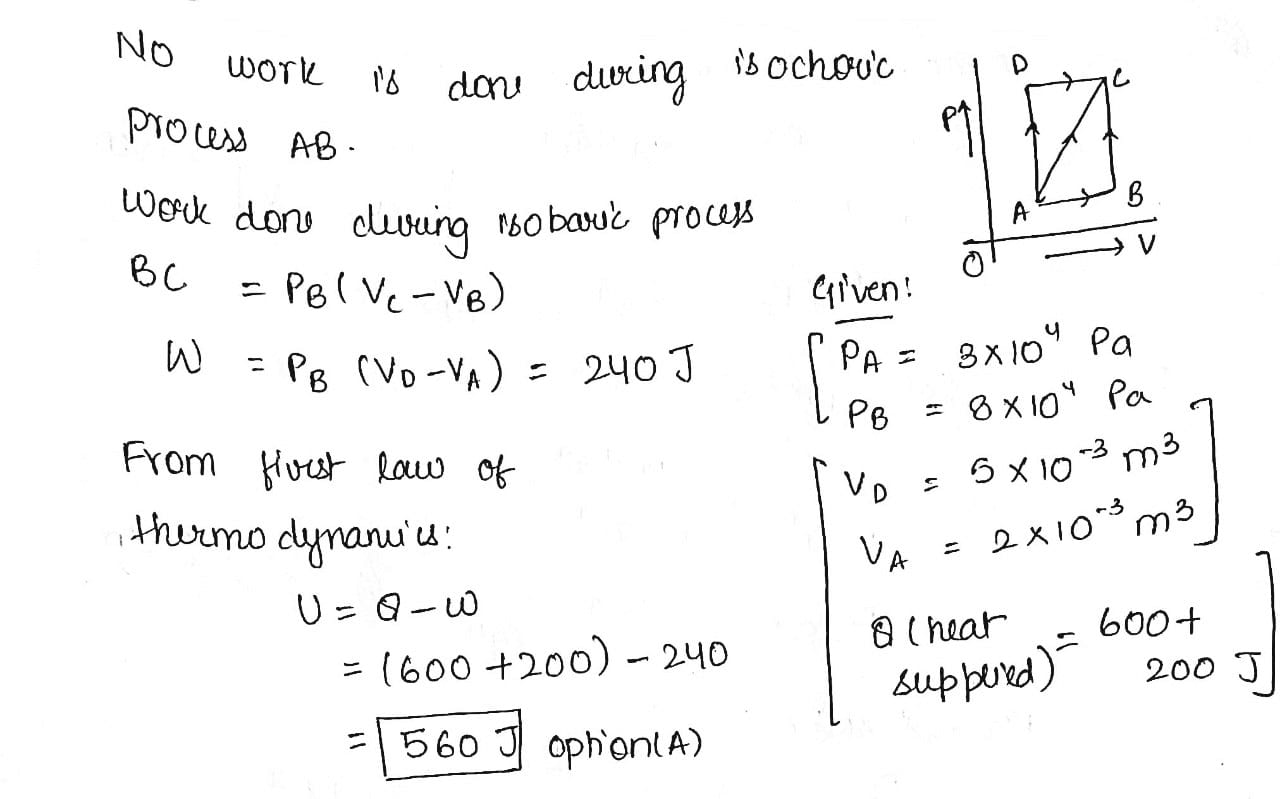 No work is done during isochoric
process AB.
Work done during isobaric process
BC = PB(VC-VB)
W = PB (VD-VA) = 240 J
From first law of
thermodynamics:
U = Q-W
= (600+200) - 240
= 560 J option(A)
P↑
D
C
A
B
O
→ V
Given:
PA = 3×10⁴ Pa
PB = 8×10⁴ Pa
VD = 5×10⁻³ m³
VA = 2×10⁻³ m³
Q (heat = 600+
supplied) 200 J